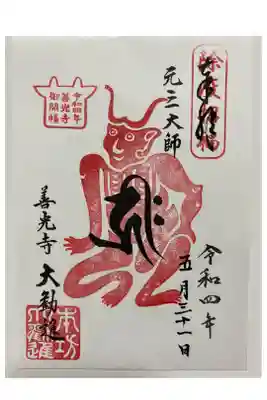 奉拝
元三大師
令和四年
善光寺
御開帳
令和四年
五月三十一日
善光寺
大勧進